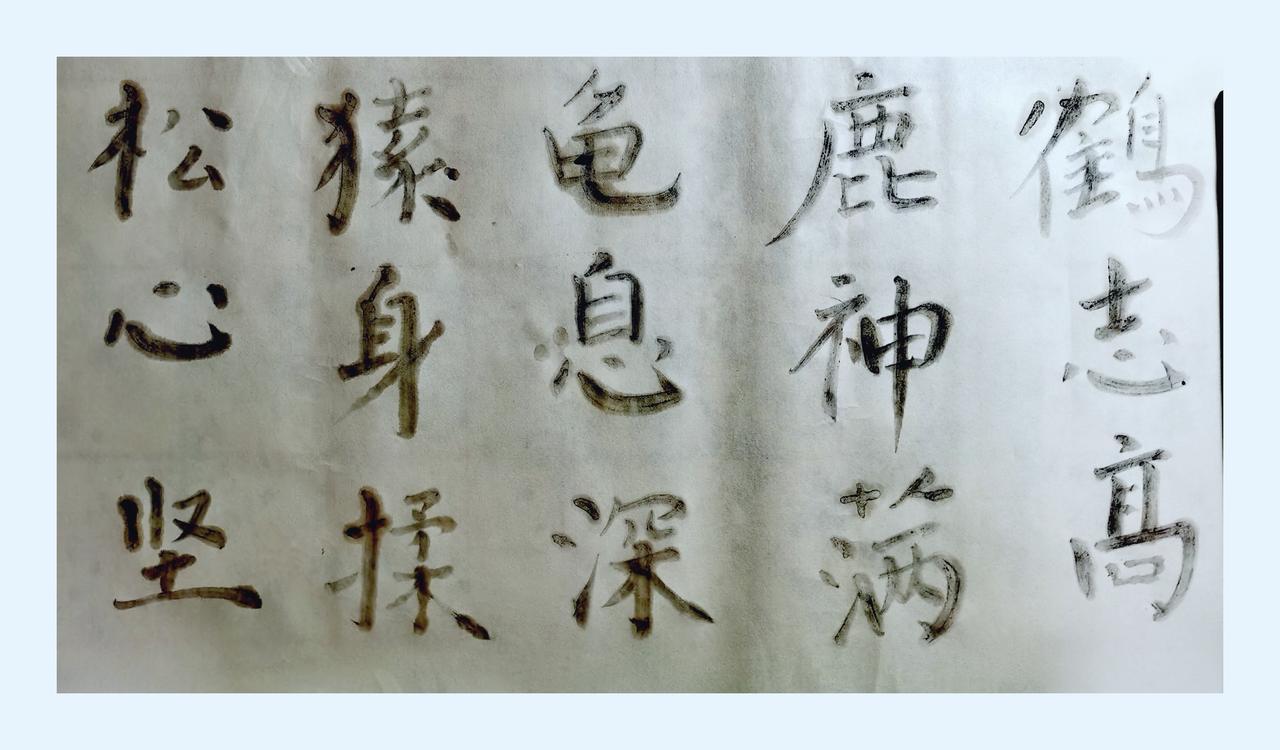 鶴志高
鹿神满
龟息深
猿身揉
松心坚